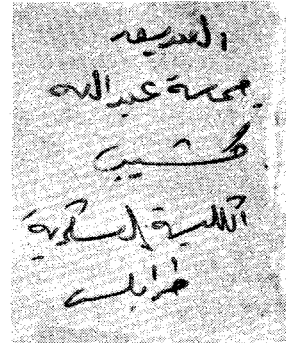 الصديق
جمعة عبدالله
كشيب
الكلية العسكرية
طرابلس